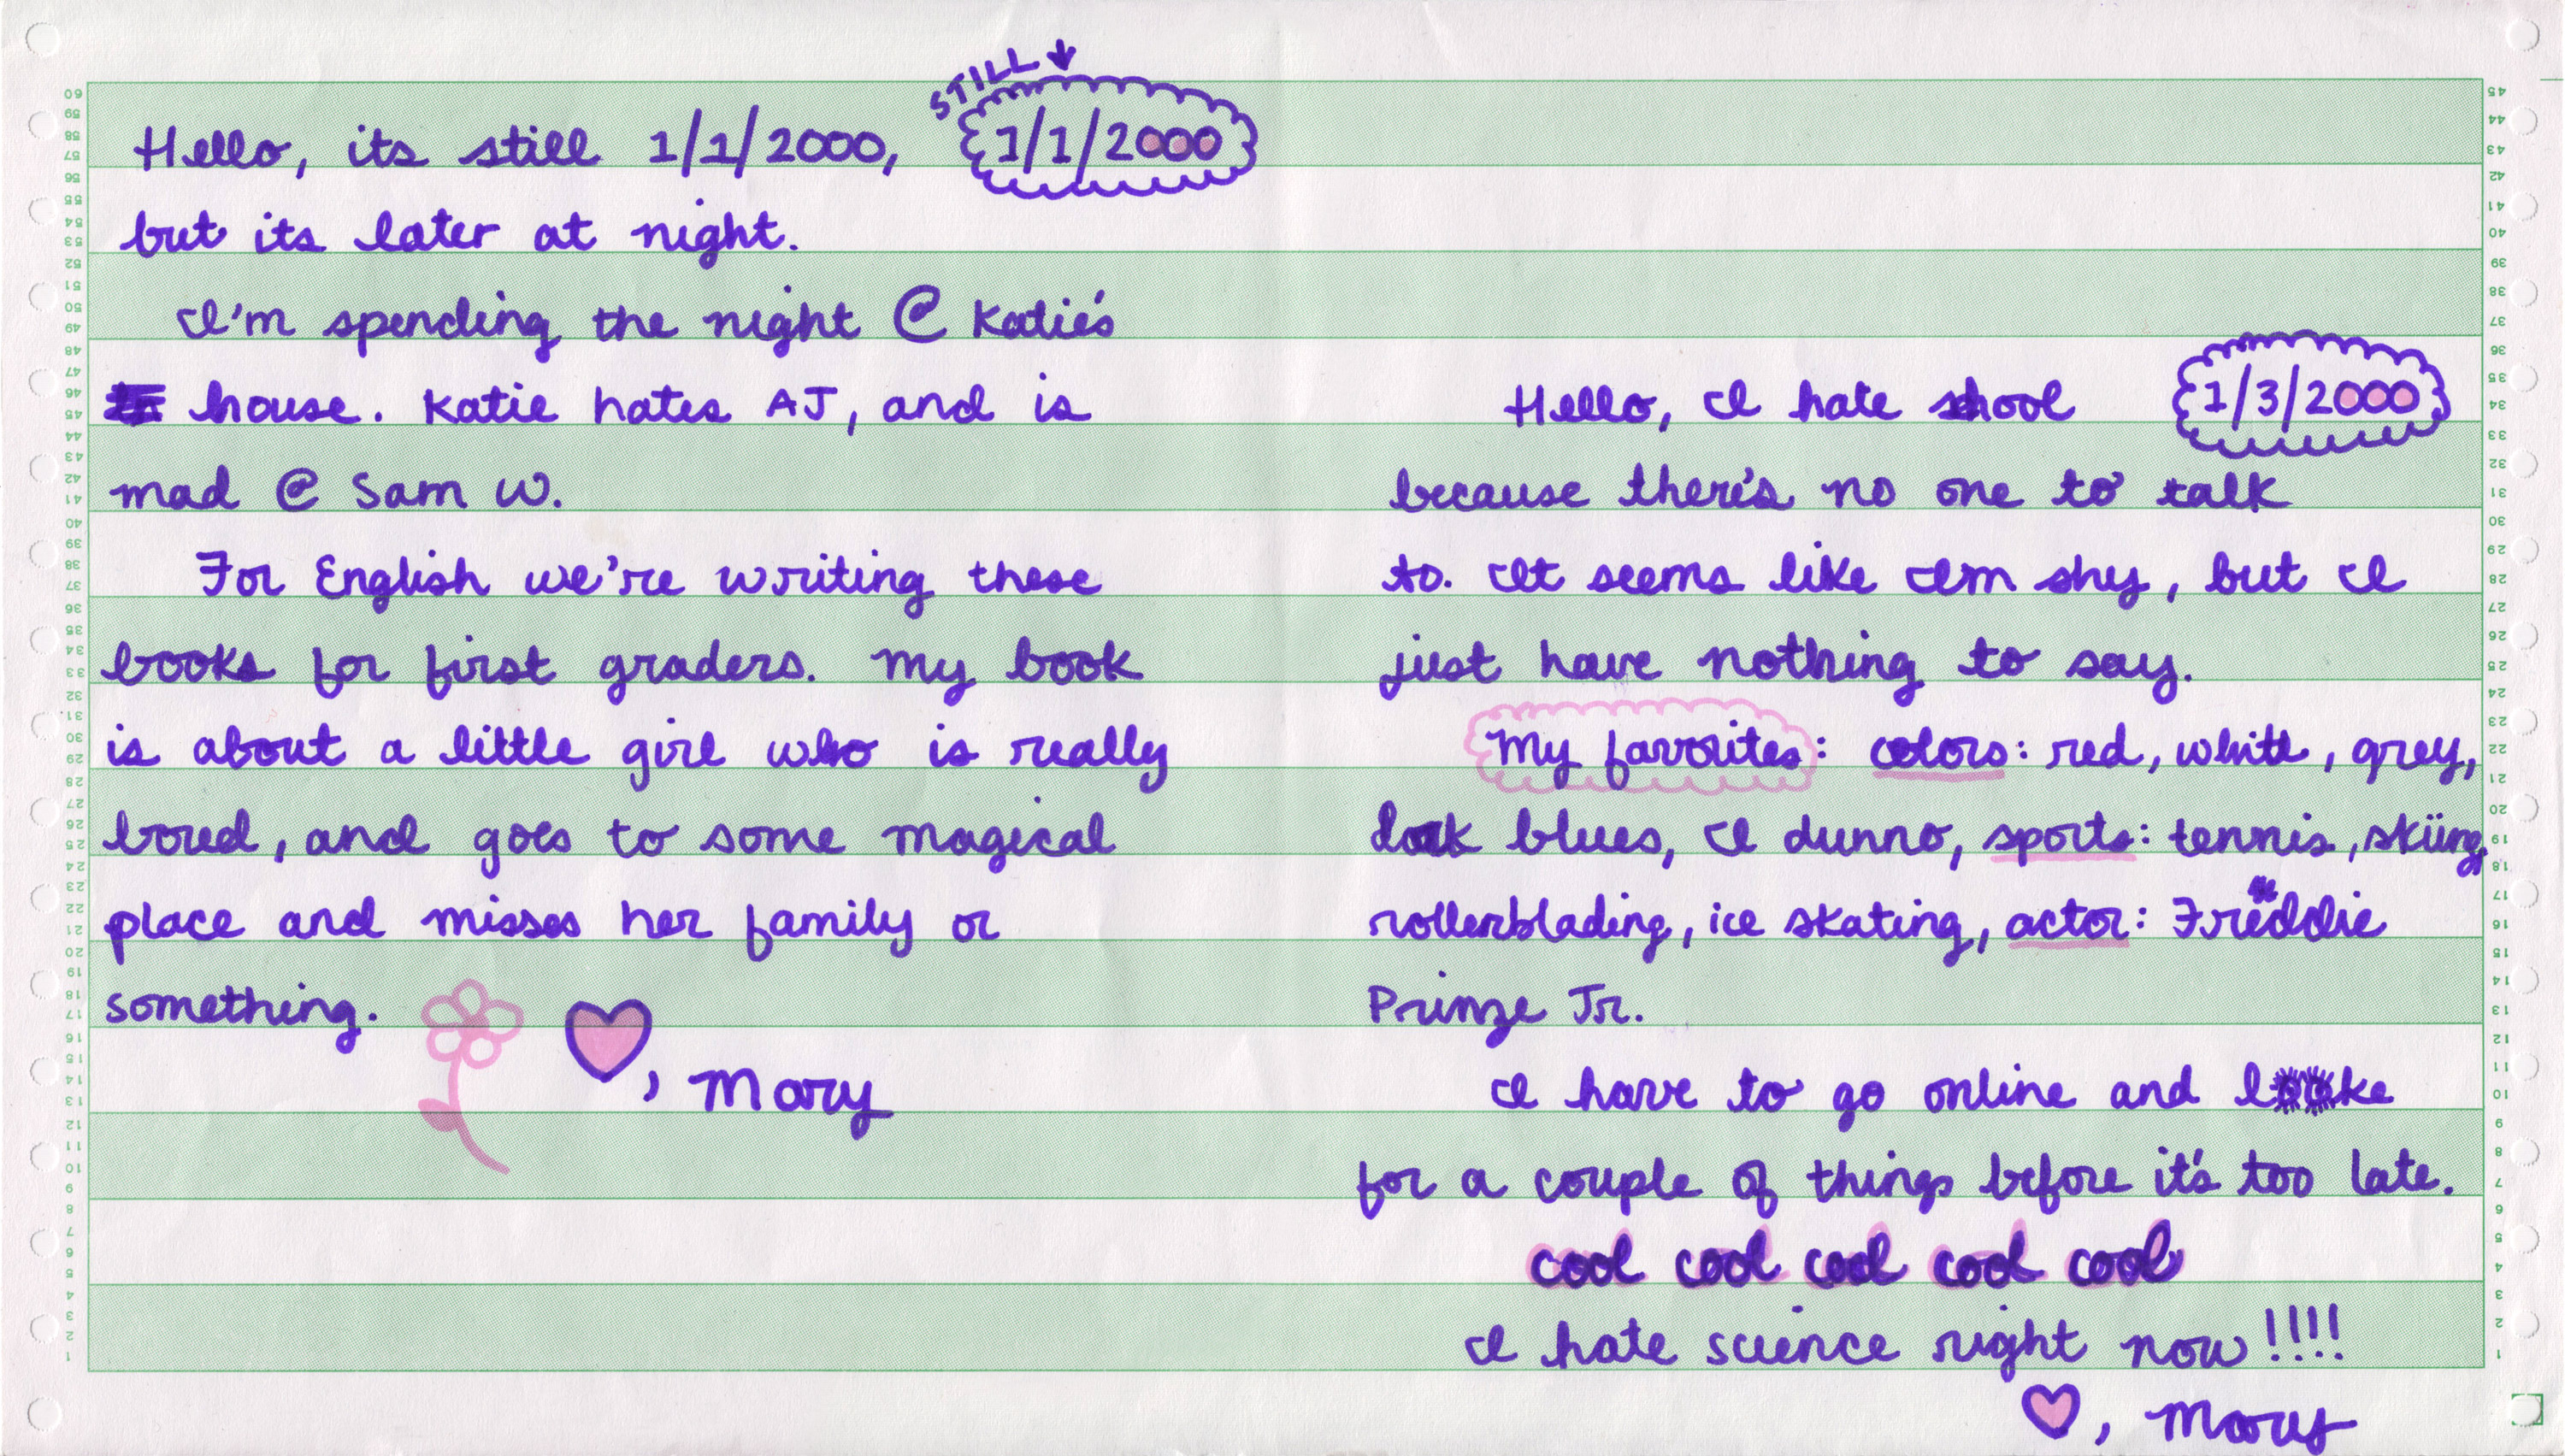 STILL
Hello, its still 1/1/2000,
1/1/2000
but its later at night.
I'm spending the night @ Katie's
house. Katie hates AJ, and is
mad @ Sam W.
For English we're writing these
books for first graders. My book
is about a little girl who is really
bored, and goes to some magical
place and misses her family or
something.
, Mary
Hello, I hate school
1/3/2000
because there's no one to talk
to. It seems like Im shy, but I
just have nothing to say.
My favorites: colors: red, white, grey,
dark blues, I dunno, sports: tennis, skiing,
rollerblading, ice skating, actor: Freddie
Prinze Jr.
I have to go online and looke
for a couple of things before it's too late.
cool cool cool cool cool
I hate science right now!!!!
, Mary